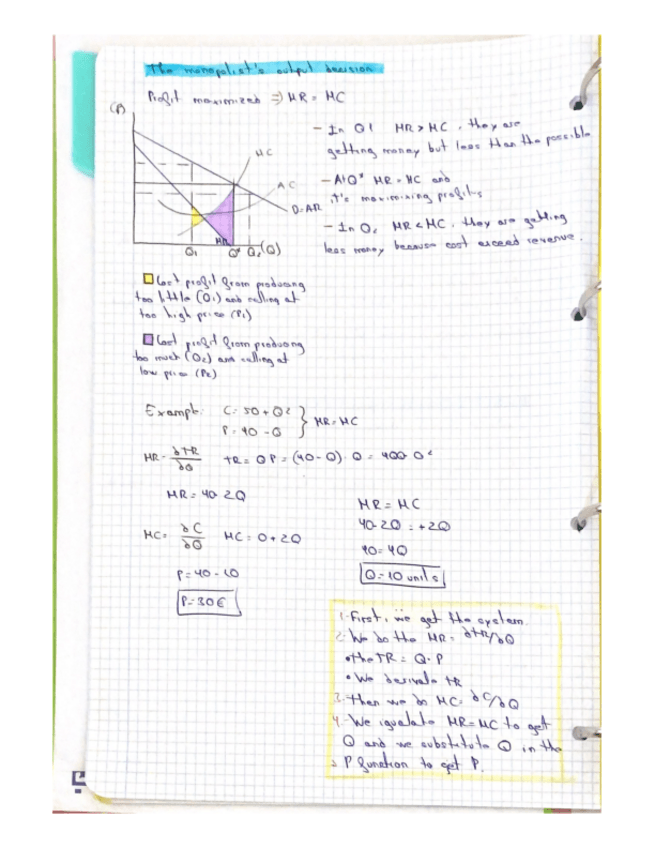 The monopolist's output decision
Profit maximized => MR = MC
(P)
MC
AC
D=AR
MR
Q1 Q* Q2 (Q)
- In Q1 MR > MC, they are
getting money but less than the possible
- At Q* MR = MC and
it's maximizing profits
- In Q2 MR < MC, they are getting
less money because cost exceed revenue.
Lost profit from producing
too little (Q1) and selling at
too high price (P1)
Lost profit from producing
too much (Q2) and selling at
low price (P2)
Example: C = 50 + Q²
P = 40 - Q } MR = MC
MR = ∂TR/∂Q TR = Q P = (40 - Q) · Q = 40Q - Q²
MR = 40 - 2Q
MC = ∂C/∂Q MC = 0 + 2Q
P = 40 - 10
P = 30€
MR = MC
40 - 2Q = +2Q
40 = 4Q
Q = 10 units
1. First, we get the system.
2. We do the MR = ∂TR/∂Q
• the TR = Q · P
• We derivate TR
3. Then we do MC = ∂C/∂Q
4. We igualate MR = MC to get
Q and we substitute Q in the
P function to get P.